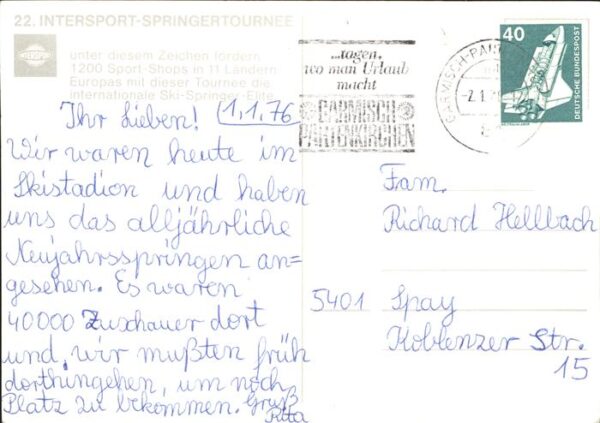 22. INTERSPORT-SPRINGERTOURNEE
unter diesem Zeichen fördern
1200 Sport-Shops in 11 Ländern
Europas mit dieser Tournee die
internationale Ski-Springer-Elite.
Ihr Lieben! 1.1.76
Wir waren heute im
Skistadion und haben
uns das alljährliche
Neujahrsspringen an=
gesehen. Es waren
40000 Zuschauer dort
und, wir mußten früh
dorthingehen, um noch
Platz zu bekommen. Gruß
Rita
...tagen,
wo man Urlaub
macht
GARMISCH
PARTENKIRCHEN
GARMISCH-PA
-2.1.
40
DEUTSCHE BUNDESPOST
Fam.
Richard Hellbach
5401 Spay
Koblenzer Str.
15